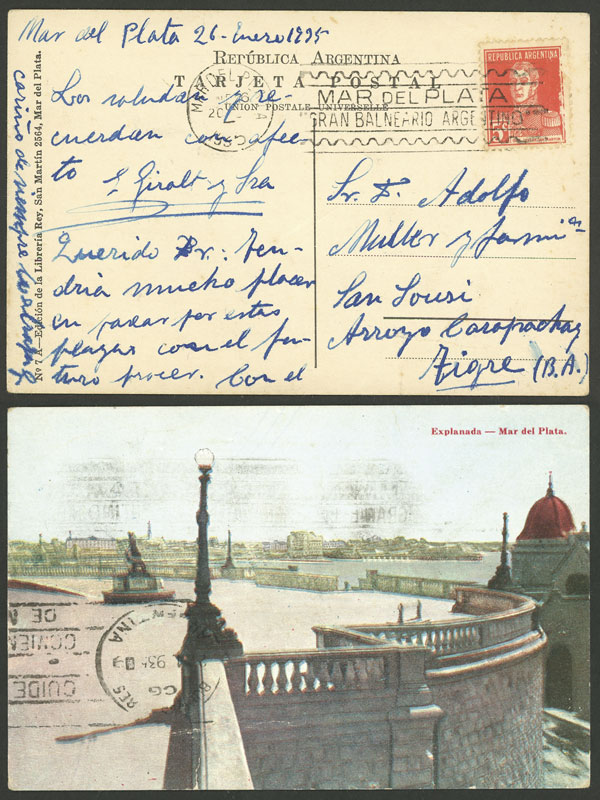 Mar del Plata 26-Enero 1935
REPÚBLICA ARGENTINA
TARJETA POSTAL
UNION POSTALE UNIVERSELLE
REPUBLICA ARGENTINA
5
MAR DEL PLATA
GRAN BALNEARIO ARGENTINO
Los saludan y re-
cuerdan con afec
to
E. Giralt y Sra
Querido Dr: Ten-
dria mucho placer
en pasar por estas
playas con el fu-
turo procer. Con el
cariño de siempre
Nº 7 A — Edición de la Librería Rey, San Martín 2564, Mar del Plata.
Sr. D. Adolfo
Muller y famia
San Souci
Arroyo Carapachay
Tigre (B.A.)
Explanada — Mar del Plata.